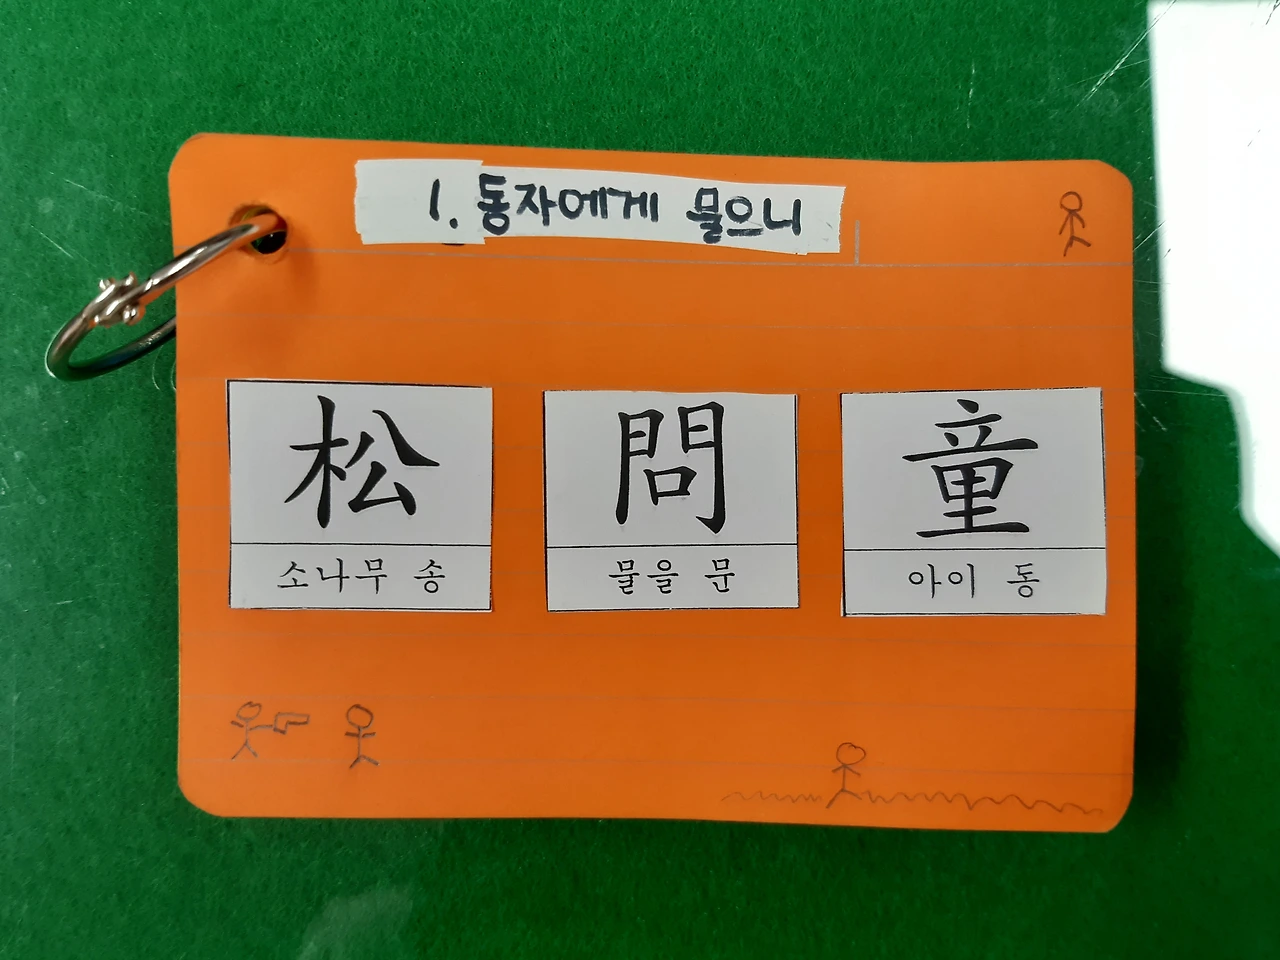 1. 동자에게 물으니
松 問 童
소나무 송 물을 문 아이 동